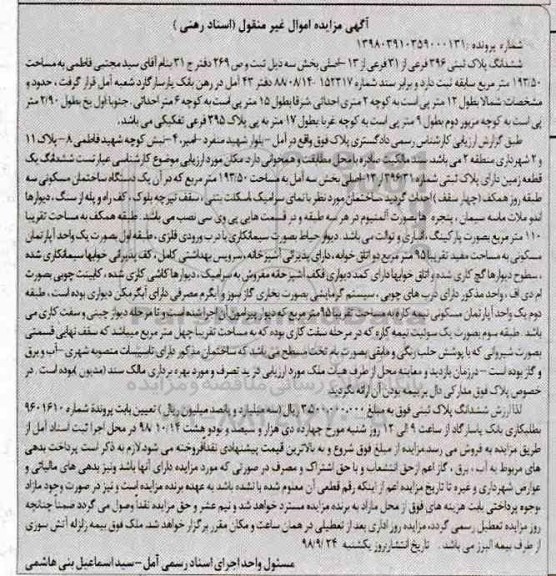 آگهی مزایده اموال غیر منقول (اسناد رهنی)
شماره پرونده: ۱۳۹۸۰۳۹۱۰۳۵۹۰۰۰۱۳۱
ششدانگ پلاک ثبتی ۳۹۶ فرعی از ۳۱ فرعی از ۱۳ -اصلی بخش سه دیل ثبت و ص ۲۶۹ دفتر ج ۳۱ بنام آقای سید مجتبی فاطمی به مساحت
۱۹۳/۵۰ متر مربع سابقه ثبت دارد و برابر سند شماره ۱۵۲۳۱۷-۸۸/۰۸/۱۴ دفتر ۴۳ آمل در رهن بانک پاسارگارد شعبه آمل قرار گرفت، حدود و
مشخصات: شمالا بطول ۱۲ متر پی است به کوچه ۲ متری احداثی شرقا بطول ۱۵ متر پی است به کوچه ۶ متر احداثی. جنوبا اول پخ بطول ۲/۹۰ متر
پی است به کوچه مزبور دوم بطول ۹ متر پی است به کوچه غربا بطول ۱۷ متر به پی ۳۹۵ فرعی تفکیکی می باشد.
طبق گزارش ارزیابی کارشناس رسمی دادگستری پلاک فوق واقع در آمل -بلوار شهید منفرد -امیر، ۴-نبش کوچه شهید فاطمی ۸-پلاک ۱۱
و ۲ شهرداری منطقه ۲ می باشد. سند مالکیت صادره با محل مطابقت و همخوانی دارد. مکان مورد ارزیابی موضوع کارشناسی عبارتست ششدانگ یک
قطعه زمین دارای پلاک ثبتی شماره ۱۳/۳۹۶۳۱-اصلی بخش سه آمل به مساحت ۱۹۳/۵۰ متر مربع که در آن یک دستگاه ساختمان مسکونی سه
طبقه روز همکف (چهار سقف) احداث گردید. ساختمان مورد نظر با نمای سرامیک، اسکلت بتنی، سقف تیرچه بلوک، کف راه و پله از سنگ، دیوارها
اندو ملات ماسه سیمان، پنجره ها بصورت آلمینیوم در هر سه طبقه و در قسمت هایی پی وی سی نصب می باشد. طبقه همکف به مساحت تقریبا
۱۱۰ متر مربع بصورت پارکینگ، انباری و توالت می باشد. دیوار حیاط بصورت سیمانکاری با درب ورودی فلزی، طبقه اول بصورت یک واحد آپارتمان
مسکونی به مساحت مفید تقریبا ۹۵ متر مربع دو اتاق خوابه، دارای پذیرائی، آشپزخانه، سرویس بهداشتی کامل، کف پذیرائی خوابها سیمانکاری شده
، سطوح دیوارها گچ کاری شده و اتاق خوابها دارای کمد دیواری فکف آشپزخانه مفروش به سرامیک، دیوارها کاشی کاری شده، کابینت چوبی بصورت
ام دی اف، واحد مذکور دارای درب های چوبی، سیستم گرمایشی بصورت بخاری گاز سوز و آبگرم مصرفی دارای آبگرمکن دیواری بوده است. طبقه
دوم یک واحد آپارتمان مسکونی نیمه کاره به مساحت تقریبا ۹۵ متر مربع که دیوار پیرامون آن اجرا شده است و تا مرحله دیوار چینی و سفت کاری می
باشد. طبقه سوم بصورت یک سوئیت نیمه کاره که در مرحله سفت کاری بوده که به مساحت تقریبا چهل متر مربع میباشد که سقف نهایی قسمتی
بصورت شیروانی که با پوشش حلب رنگی و مابقی بصورت بام تخت مسطح می باشد که ساختمان مذکور دارای تاسیسات منصوبه شهری-آب و برق
و گاز بوده است - در زمان بازدید و معاینه محل از طرف هیات ملک مورد ارزیابی در ید تصرف و مورد بهره برداری مالک سند (مدیون) بوده است. در
خصوص پلاک فوق مدارکی دال بر بیمه بودن آن ارائه نگردید.
لذا ارزش ششدانگ پلاک ثبتی فوق به مبلغ ۳۵۰۰۰۰۰۰۰۰ ریال (سه میلیارد و پانصد میلیون ریال) تعیین بابت پرونده شماره ۹۶۰۱۶۱۰
بطلبکاری بانک پاسارگاد از ساعت ۹ الی ۱۲ روز شنبه مورخ چهارده دی هزار و سیصد و نود و هشت ۹۸/۱۰/۱۴ در محل اجرا ثبت اسناد آمل از
طریق مزایده به فروش می رسد. مزایده از مبلغ فوق شروع و به بالاترین قیمت پیشنهادی نقدا فروخته می شود. لازم به ذکر است پرداخت بدهی
های مربوط به آب، برق، گاز اعم از حق انشعاب و یا حق اشتراک و مصرف در صورتی که مورد مزایده دارای آنها باشد ونیز بدهی های مالیاتی و
عوارض شهرداری و غیره تا تاریخ مزایده اعم از اینکه رقم قطعی آن معلوم شده یا نشده باشد به عهده برنده مزایده است و نیز در صورت وجود مازاد
وجوه پرداختی بابت هزینه های فوق از محل مازاد به برنده مزایده مسترد خواهد شد و نیم عشر و حق مزایده نقدا وصول می گردد ضمنا چنانچه
روز مزایده تعطیل رسمی گردد، مزایده روز اداری بعد از تعطیلی در همان ساعت و مکان مقرر برگزار خواهد شد. ملک فوق بیمه زلزله آتش سوزی
از طرف بیمه البرز می باشد. تاریخ انتشار:روز یکشنبه ۹۸/۹/۲۴
مسئول واحد اجرای اسناد رسمی آمل-سید اسماعیل بنی هاشمی